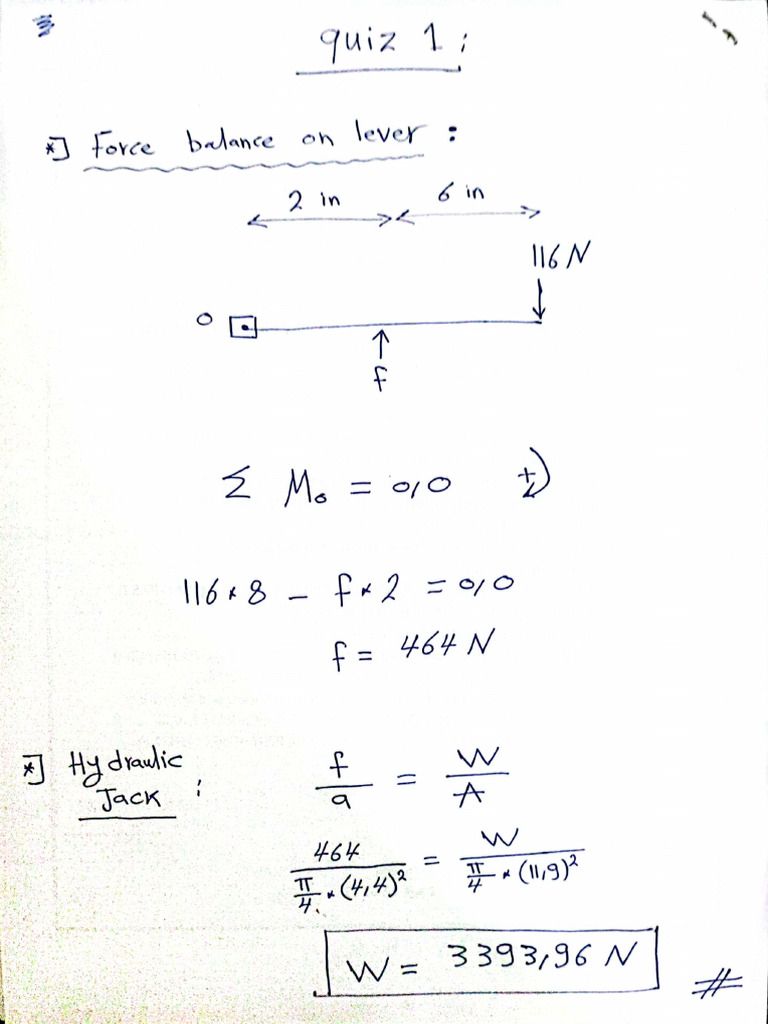 quiz 1 :
*] Force balance on lever :
2 in 6 in
116 N
O
f
Σ M₀ = 0,0 +
116 * 8 - f * 2 = 0,0
f = 464 N
*] Hydraulic Jack :
f/a = W/A
464 / (π/4 * (4,4)²) = W / (π/4 * (11,9)²)
W = 3393,96 N #